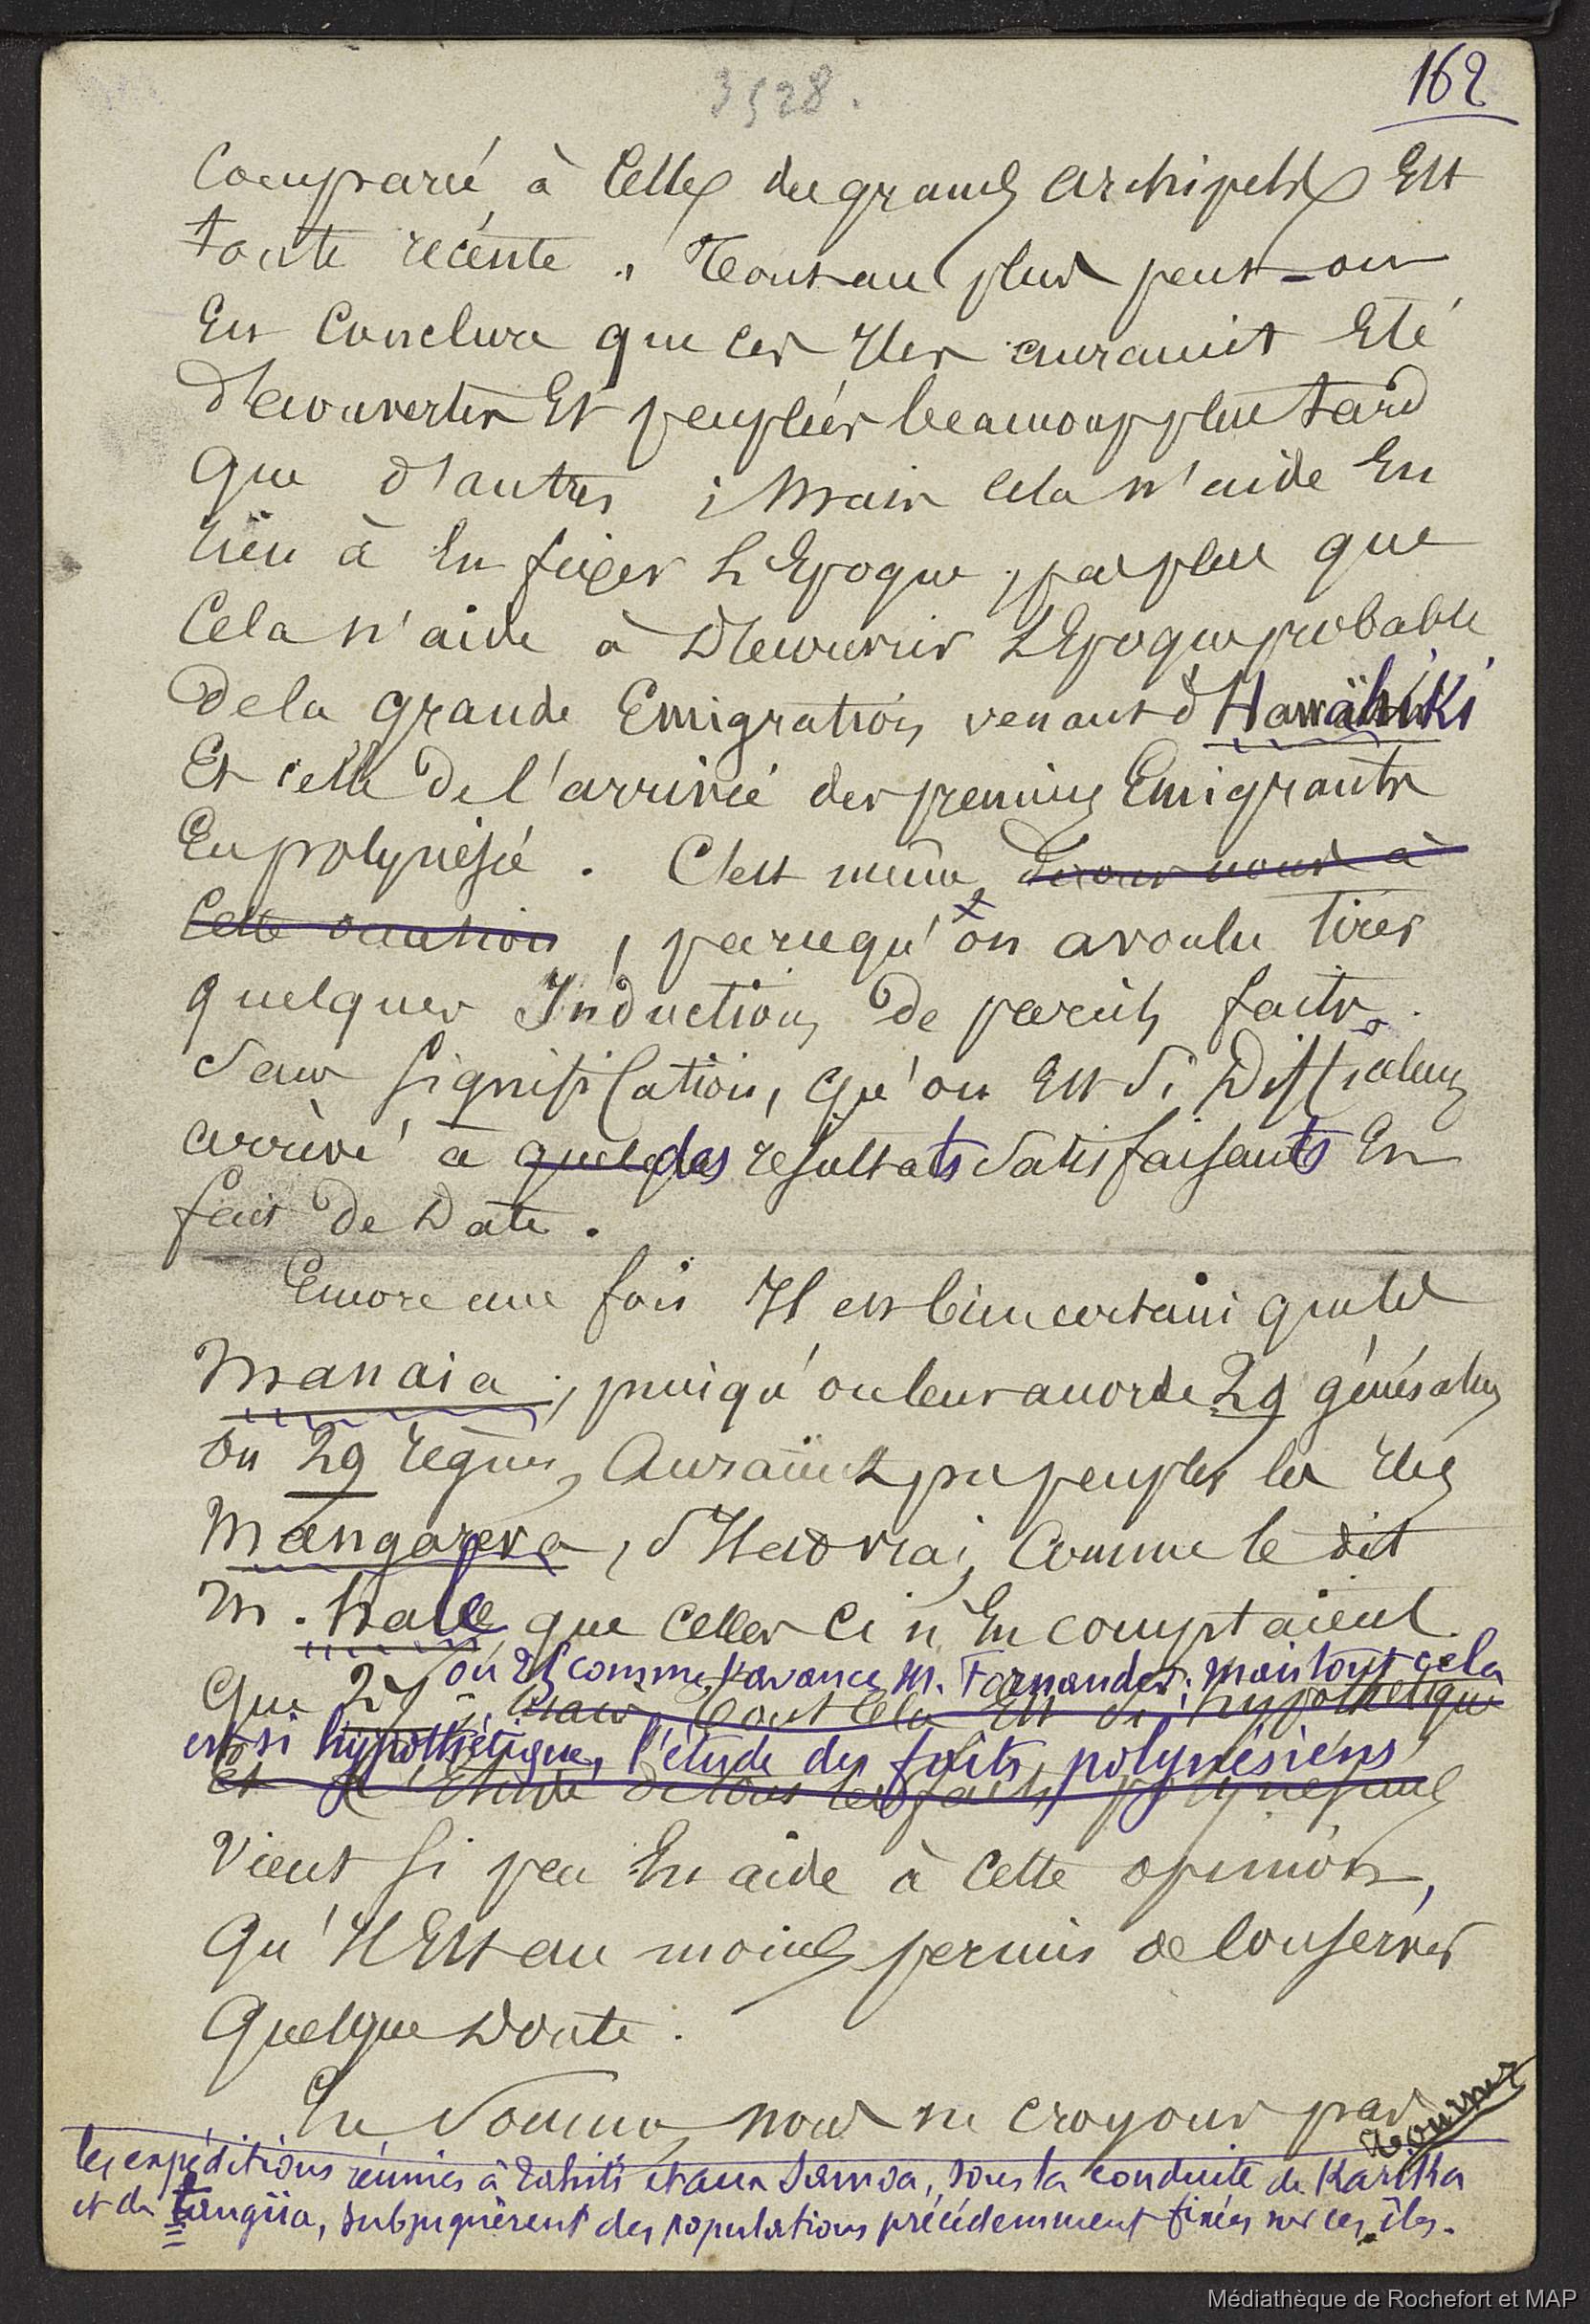 3528.
162
Comparé à Celle des grands Archipels Est
toute récente. Tout au plus peut-on
En Conclure que ces Iles auraient Eté
découvertes Et peuplées beaucoup plus tard
Que d'autres ; Mais Cela n'aide En
rien à En fixer L'Epoque, pas plus que
Cela n'aide à Découvrir L'Epoque probable
De la grande Emigration venant d'Hawahiki
Et celle de l'arrivée des premiers Emigrants
En polynésie. C'est même, disons nous à
Cette occasion, parcequ'on a voulu tirer
quelques Inductions de pareils faits
Sans signification, qu'on Est Si Difficilement
arrivé à des résultats Satisfaisants En
fait de Date.
Encore une fois Il est bien certain que les
Manaia, puisqu'on leur accorde 29 générations
ou 29 règnes, Auraient pu peupler les Iles
Mangareva, S'Il est vrai, Comme le dit
M. Hale que Celles Ci n'En comptaient
Que 27, Mais tout Cela Est Si hypothétique
ou 25 comme l'avance M. Fornander; mais tout cela
est si hypothétique, l'étude des faits polynésiens
Et l'Etude de tous les faits polynésiens
Vient Si peu En aide à Cette opinion,
Qu'Il Est au moins permis de Conserver
Quelque Doute.
En Somme, nous ne croyons pas
Tournez
les expéditions réunies à Tahiti et aux Samoa, sous la conduite de Karika
et de Tangiia, subjuguèrent des populations précédemment fixées sur ces îles.
Médiathèque de Rochefort et MAP